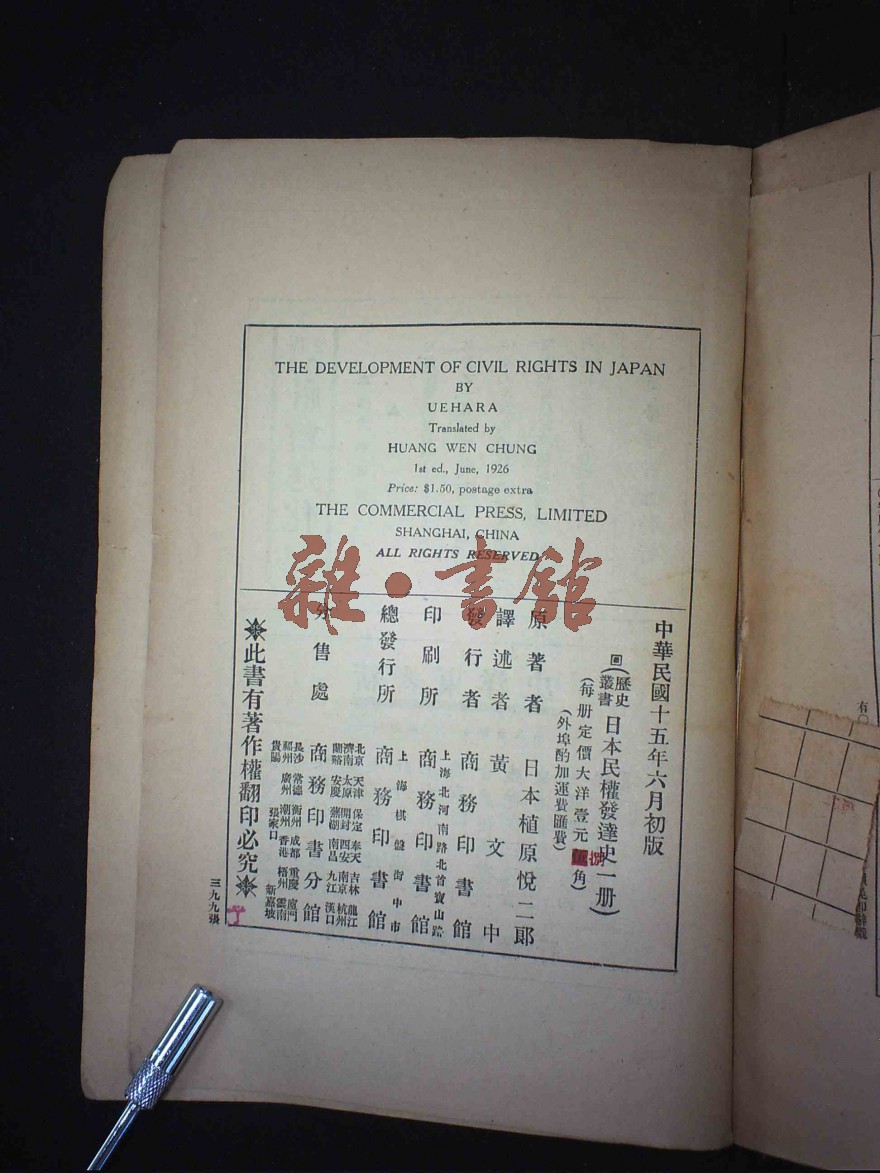 THE DEVELOPMENT OF CIVIL RIGHTS IN JAPAN
BY
UEHARA
Translated by
HUANG WEN CHUNG
1st ed., June, 1926
Price: $1.50, postage extra
THE COMMERCIAL PRESS, LIMITED
SHANGHAI, CHINA
ALL RIGHTS RESERVED
雜·書館
中華民國十五年六月初版
(歷史叢書 日本民權發達史一册)
(每册定價大洋壹元角)
(外埠酌加運費匯費)
原著者 日本植原悅二郞
譯述者 黃文中
發行者 商務印書館
印刷所 上海北河南路北首寶山路 商務印書館
總發行所 上海棋盤街中市 商務印書館
分售處 商務印書分館
北京 天津 保定 奉天 吉林 龍江
濟南 太原 開封 西安 南京 杭州
蘭谿 安慶 蕪湖 南昌 九江 漢口
長沙 常德 衡州 成都 重慶 廈門
福州 廣州 潮州 香港 梧州 雲南
貴陽 張家口 新嘉坡
此書有著作權翻印必究
三九九張